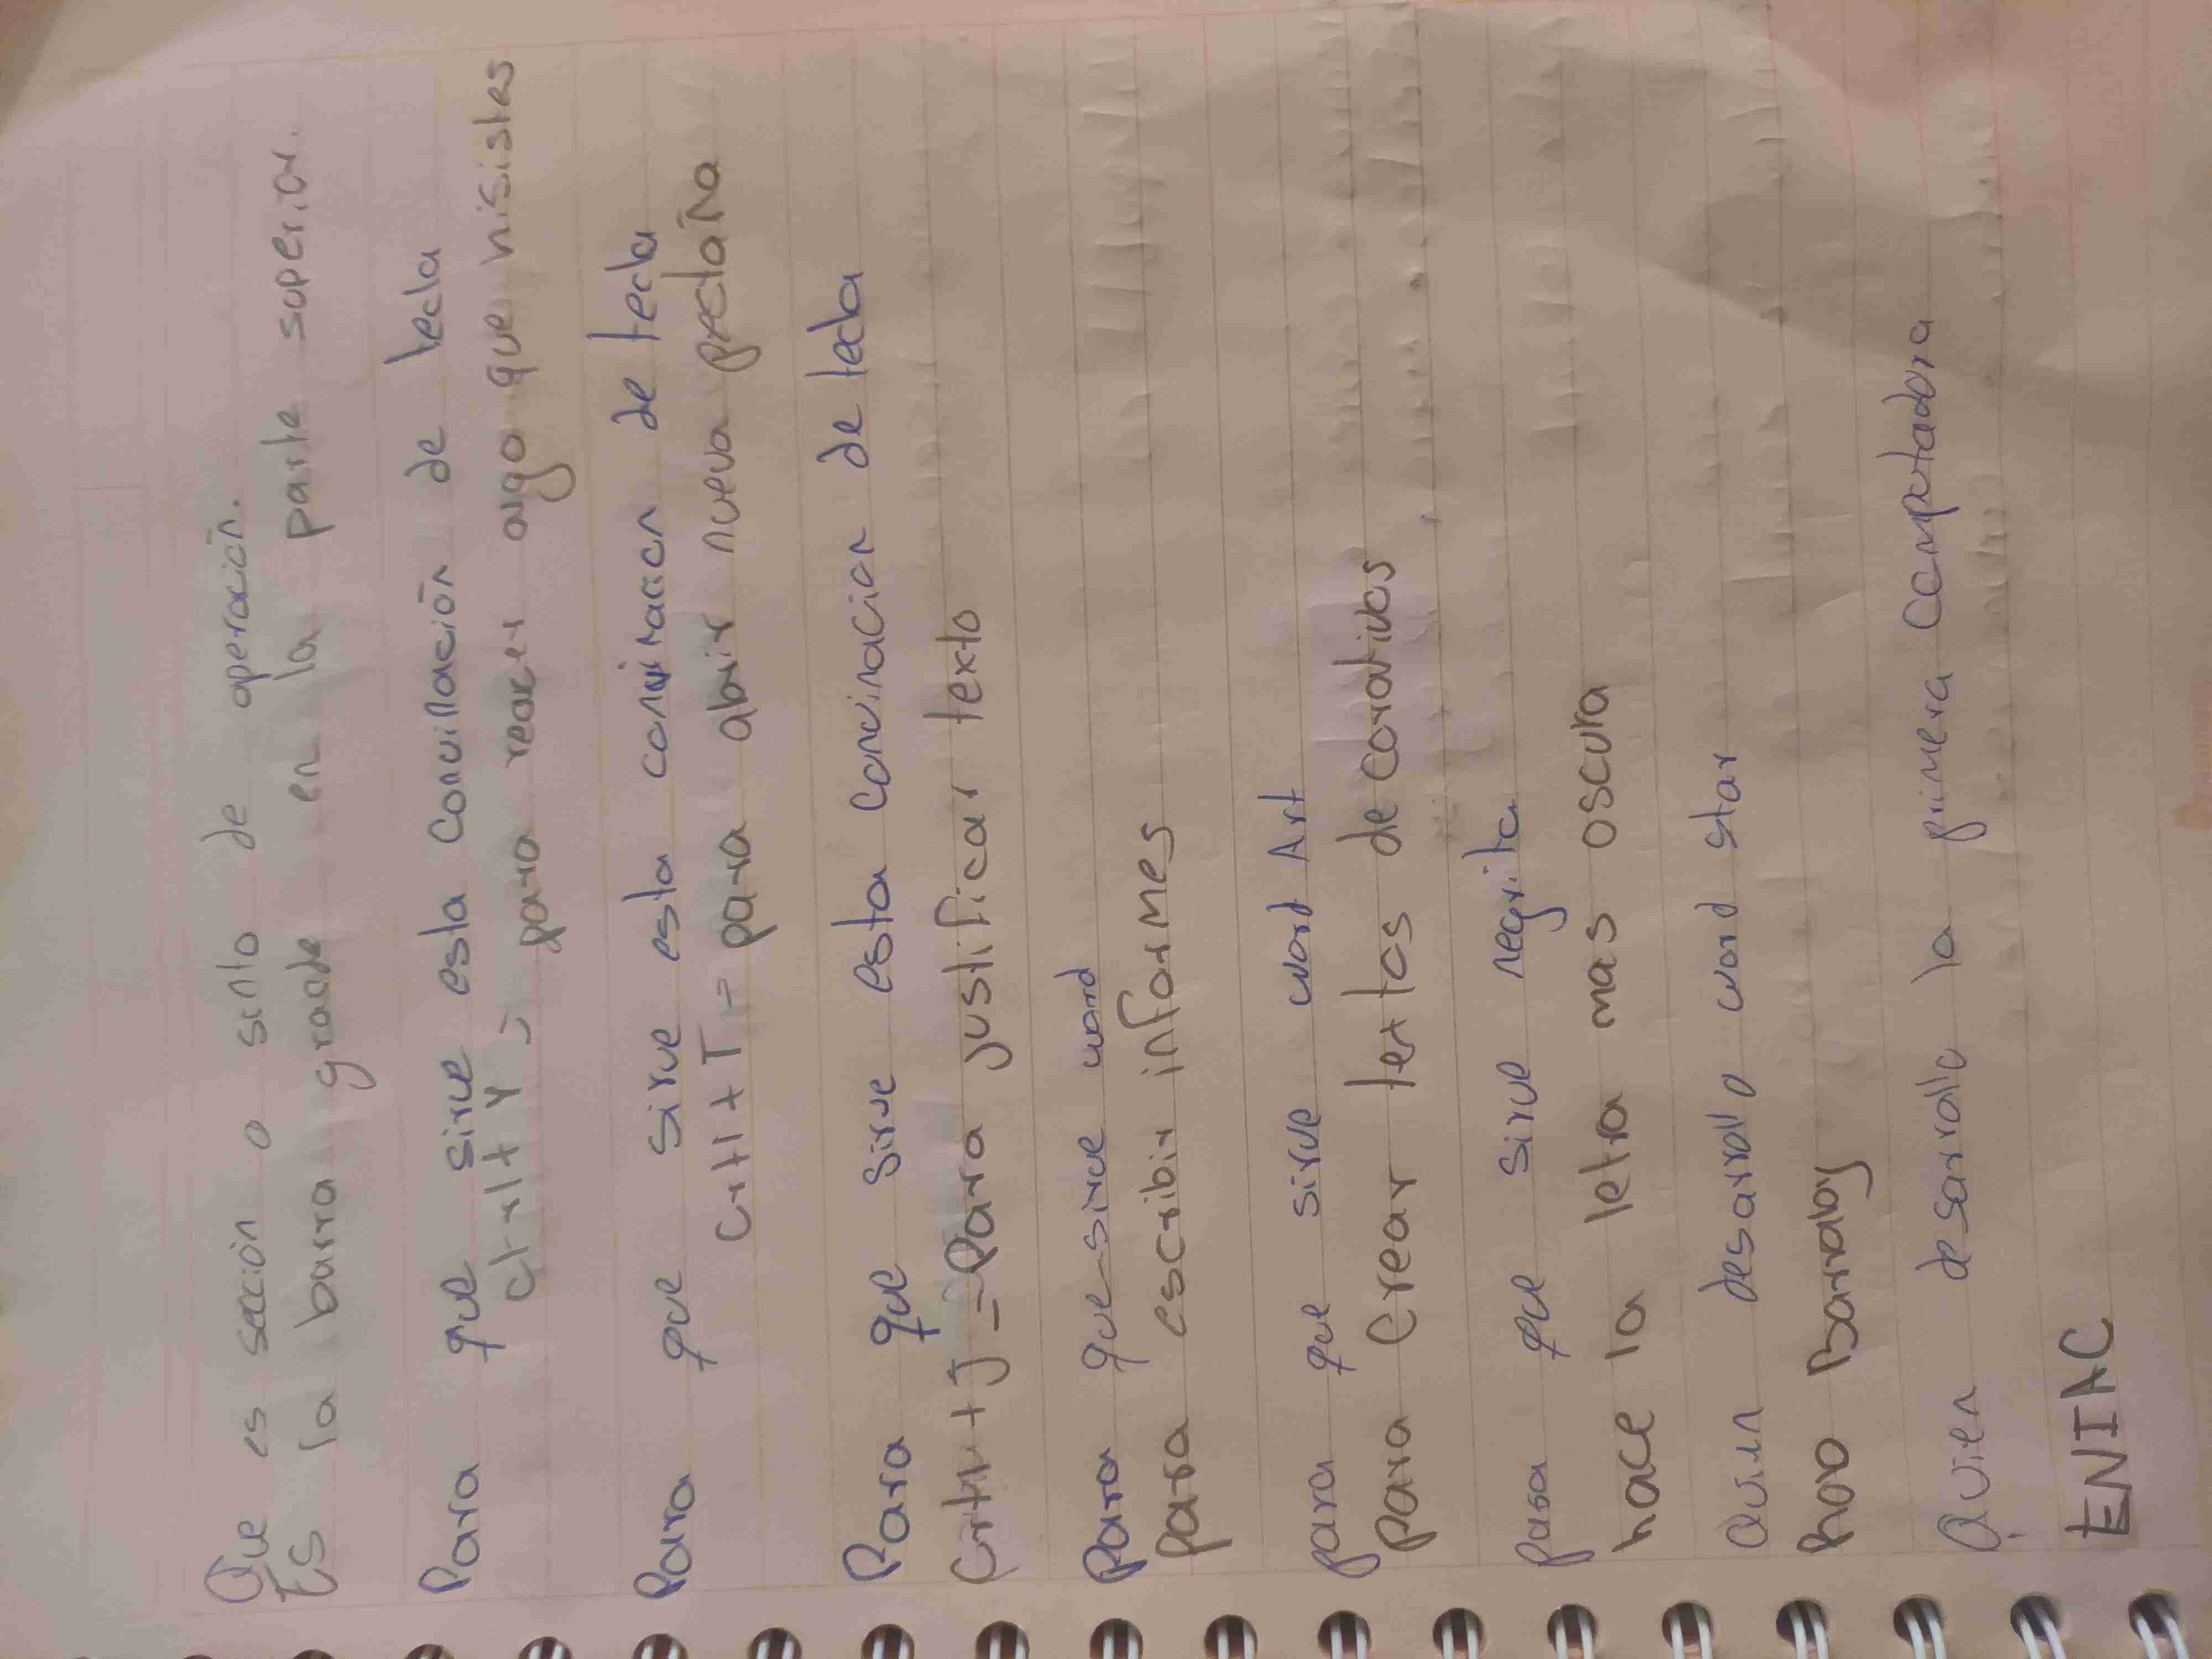 Que es sección o sinto de operación.
Es la barra grade en la parte superior.
Para que sirve esta convinación de tecla
Ctrl + Y = para reacer algo que hisistes
Para que sirve esta convinacion de tecla
Crtl + T = para abrir nueva pectaña
Para que sirve esta convinacion de tecla
Crtl + j = Para justificar texto
Para que sirve word
para escribir informes
para que sirve word Art
para Crear textos de corativos
para que sirve negrita
hace la letra mas oscura
Quin desarrollo word star
Rob Barnaby
Quien desarollo la primera computadora
ENIAC